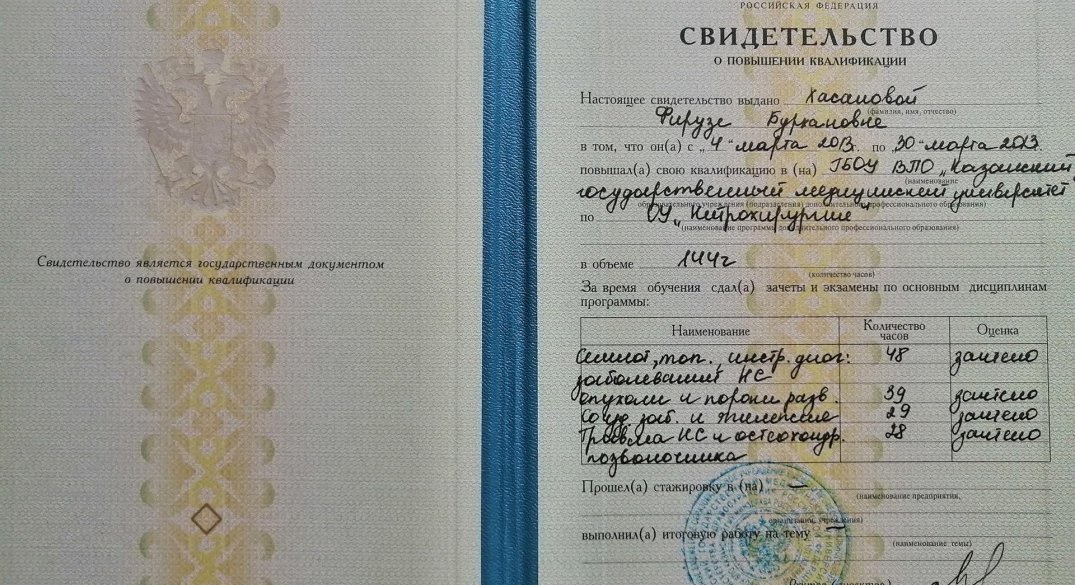 Свидетельство является государственным документом
о повышении квалификации
РОССИЙСКАЯ ФЕДЕРАЦИЯ
СВИДЕТЕЛЬСТВО
О ПОВЫШЕНИИ КВАЛИФИКАЦИИ
Настоящее свидетельство выдано Хасановой
(фамилия, имя, отчество)
Фирузе Буркановне
в том, что он(а) с „4“ марта 2013г. по „30“ марта 2013г.
повышал(а) свою квалификацию в (на) ГБОУ ВПО „Казанский
(наименование
государственный медицинский университет
образовательного учреждения (подразделения) дополнительного профессионального образования)
по ОУ „Нейрохирургия“
(наименование программы дополнительного профессионального образования)
в объеме 144г
(количество часов)
За время обучения сдал(а) зачеты и экзамены по основным дисциплинам
программы:
Наименование Количество часов Оценка
Семиот, топ., инстр. диог: 48 зачтено
заболеваний НС
опухоли и пороки разв. 39 зачтено
Сосуд. заб. и эпилепсие 29 зачтено
Травма НС и остеохондр. 28 зачтено
позвоночника
Прошел(а) стажировку в (на) –
(наименование предприятия,
организации, учреждения)
выполнил(а) итоговую работу на тему –
(наименование темы)